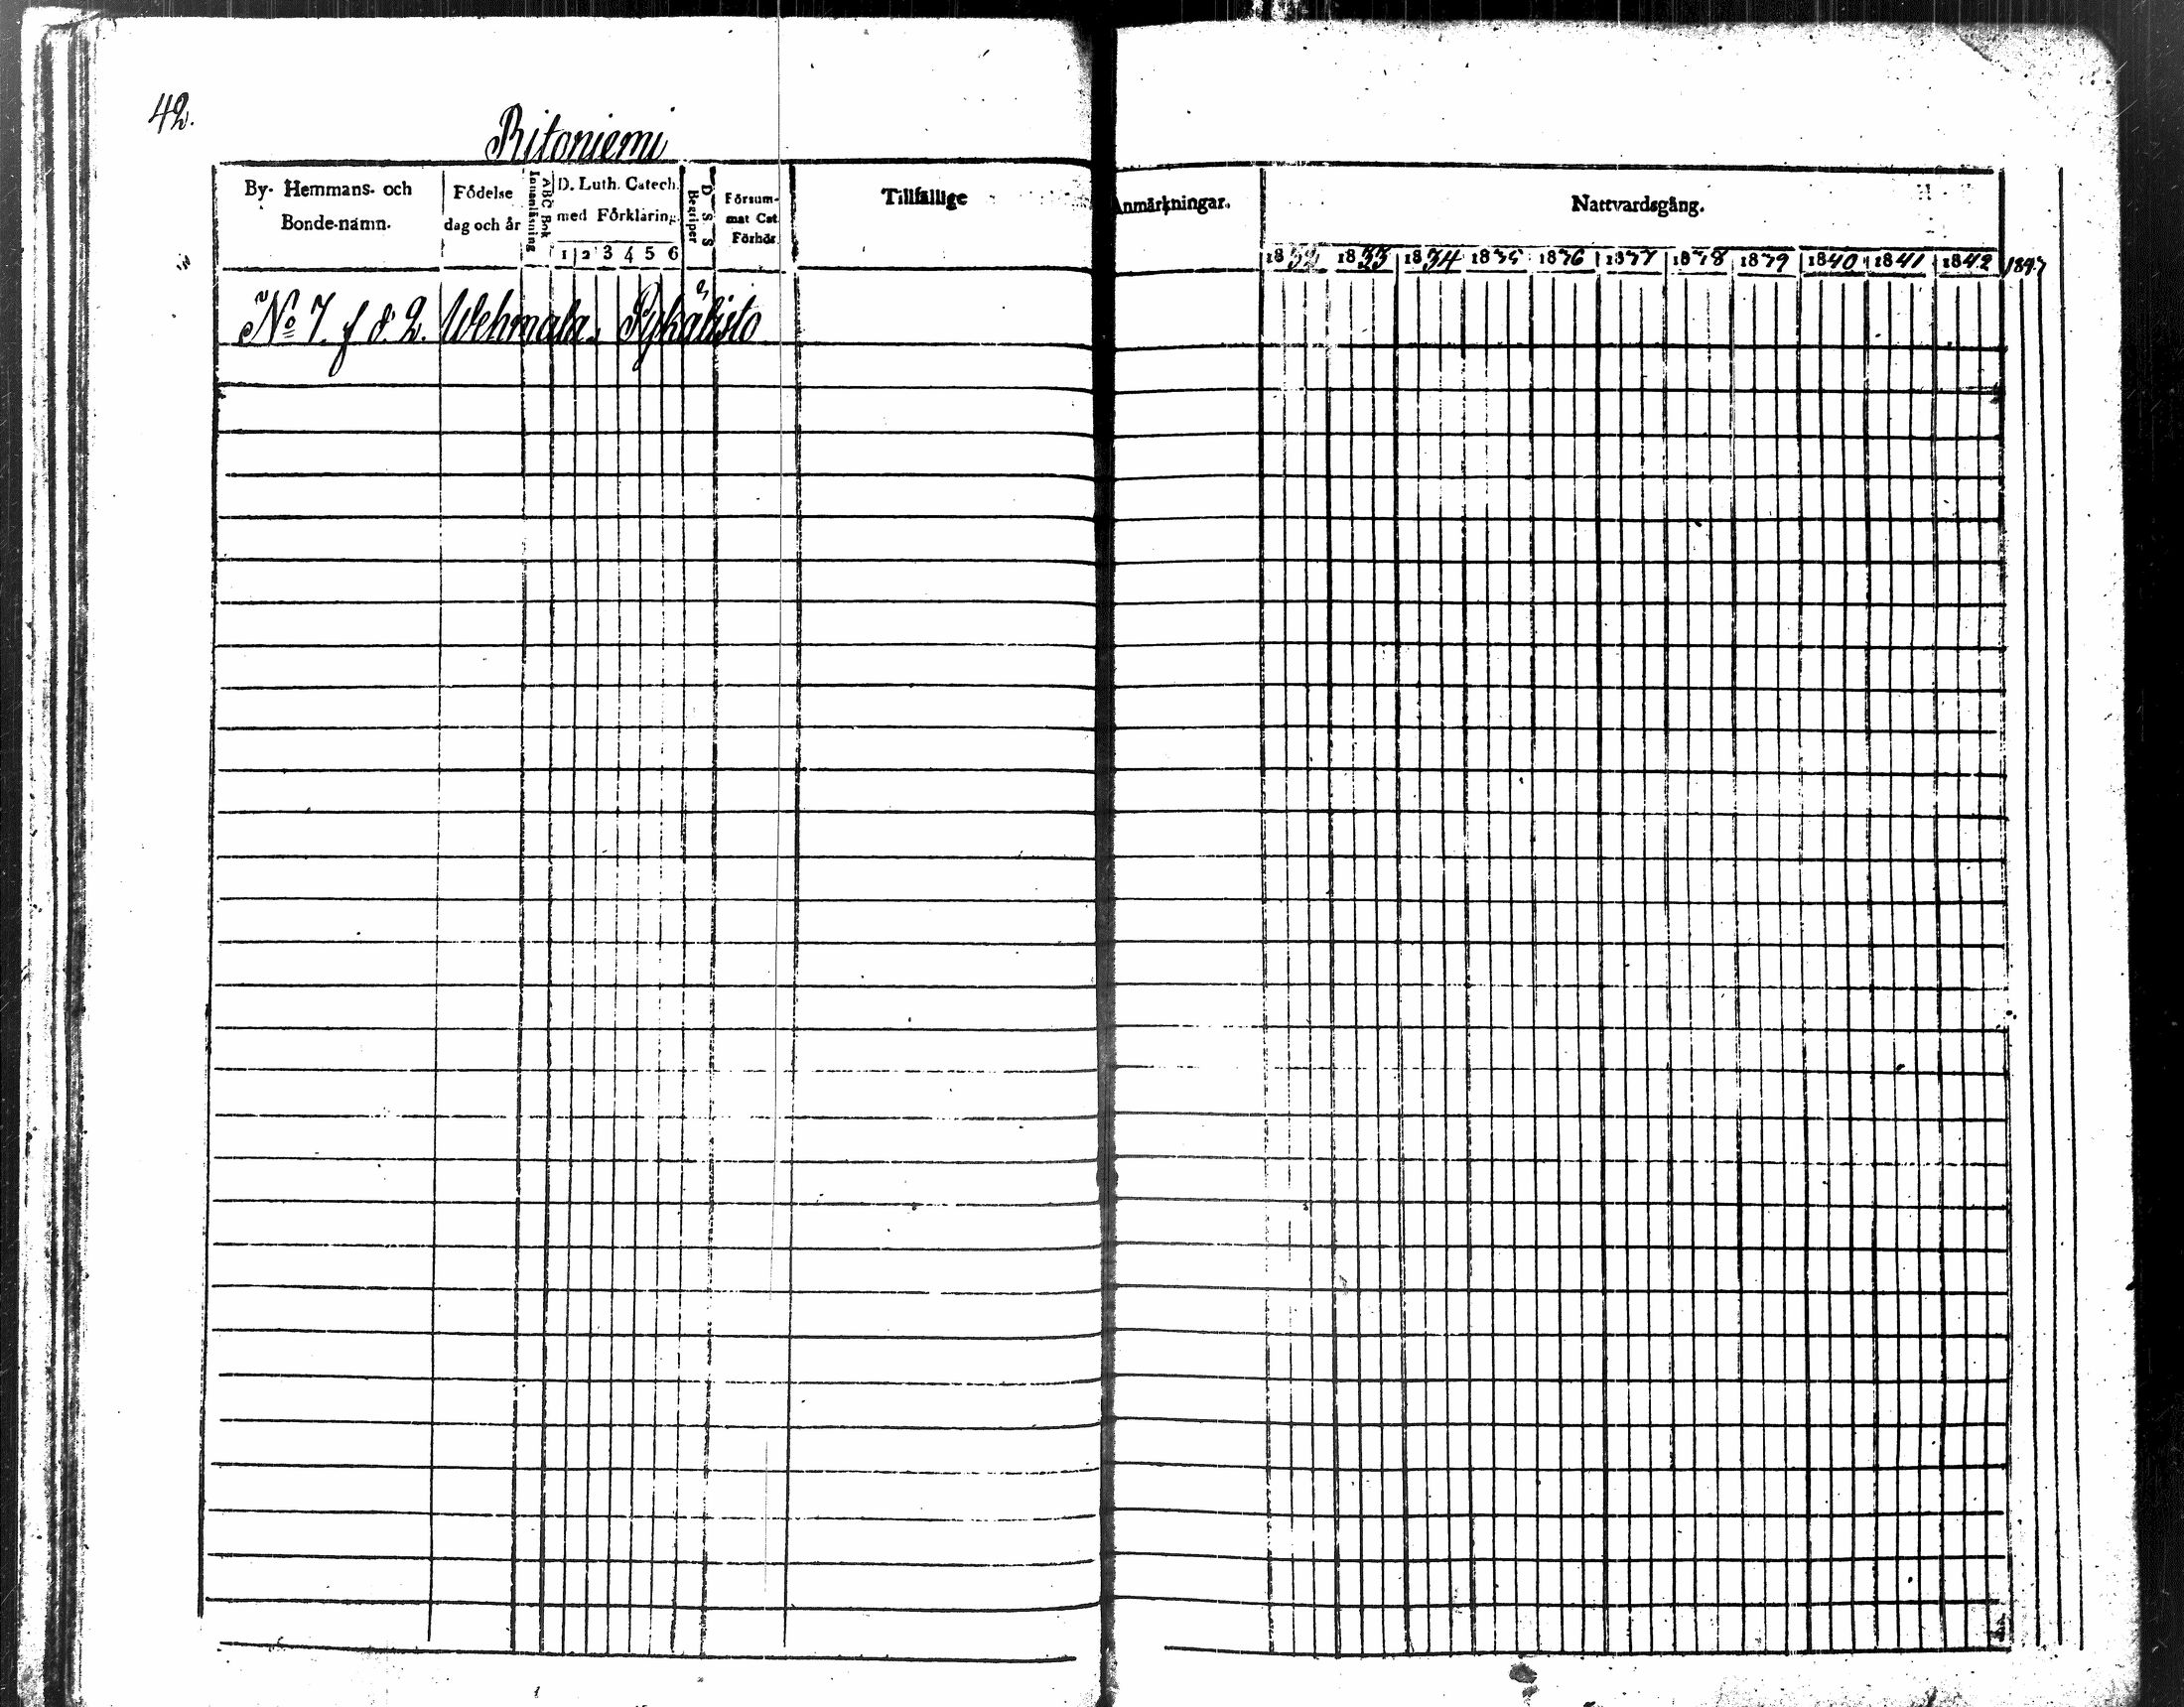 42.
Ritoniemi
By- Hemmans- och Bonde-namn.
Födelse dag och år
ABC Bok Innanläsning
D. Luth. Catech. med Förklaring.
1 2 3 4 5 6
D. S. S. Begriper
Försummat Cat. Förhör
Tillfällige Anmärkningar.
Nattvardsgång.
1832 1833 1834 1835 1836 1837 1838 1839 1840 1841 1842 1843
No 7. f d. 2. Wehmala. Pykälistö